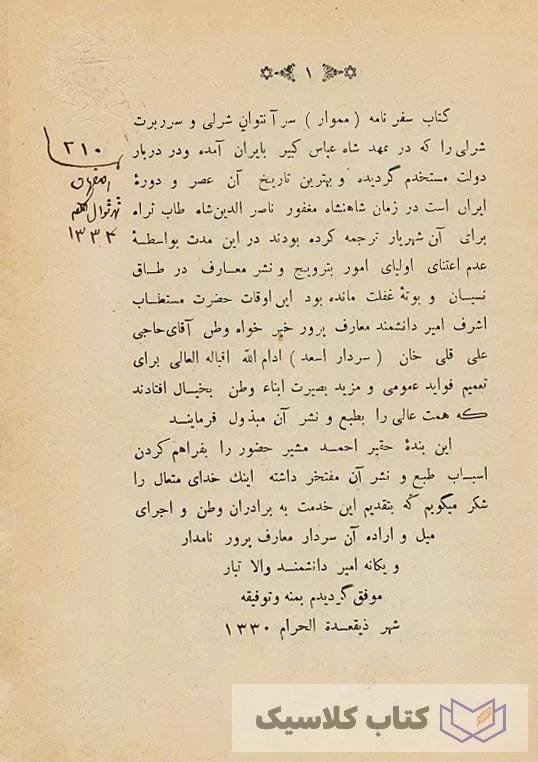 ۱
کتاب سفر نامه ( مموار ) سر آنتوان شرلی و سر ربرت
شرلی را که در عهد شاه عباس کبیر بایران آمده ودر دربار
دولت مستخدم گردیده و بهترین تاریخ آن عصر و دورهٔ
ایران است در زمان شاهنشاه مغفور ناصر الدین‌شاه طاب ثراه
برای آن شهریار ترجمه کرده بودند در این مدت بواسطهٔ
عدم اعتنای اولیای امور بترویج و نشر معارف در طاق
نسیان و بوتهٔ غفلت مانده بود این اوقات حضرت مستطاب
اشرف امیر دانشمند معارف پرور خیر خواه وطن آقای حاجی
علی قلی خان ( سردار اسعد ) ادام الله اقباله العالی برای
تعمیم فواید عمومی و مزید بصیرت ابناء وطن بخیال افتادند
که همت عالی را بطبع و نشر آن مبذول فرمایند
این بندهٔ حقیر احمد مشیر حضور را بفراهم کردن
اسباب طبع و نشر آن مفتخر داشته اینك خدای متعال را
شکر میگویم که بتقدیم این خدمت به برادران وطن و اجرای
میل و اراده آن سردار معارف پرور نامدار
و یکانه امیر دانشمند والا تبار
موفق گردیدم بمنه وتوفیقه
شهر ذیقعدة الحرام ۱۳۳۰
۲۱۰
شهر شوال
۱۳۳۴
کتاب کلاسیک